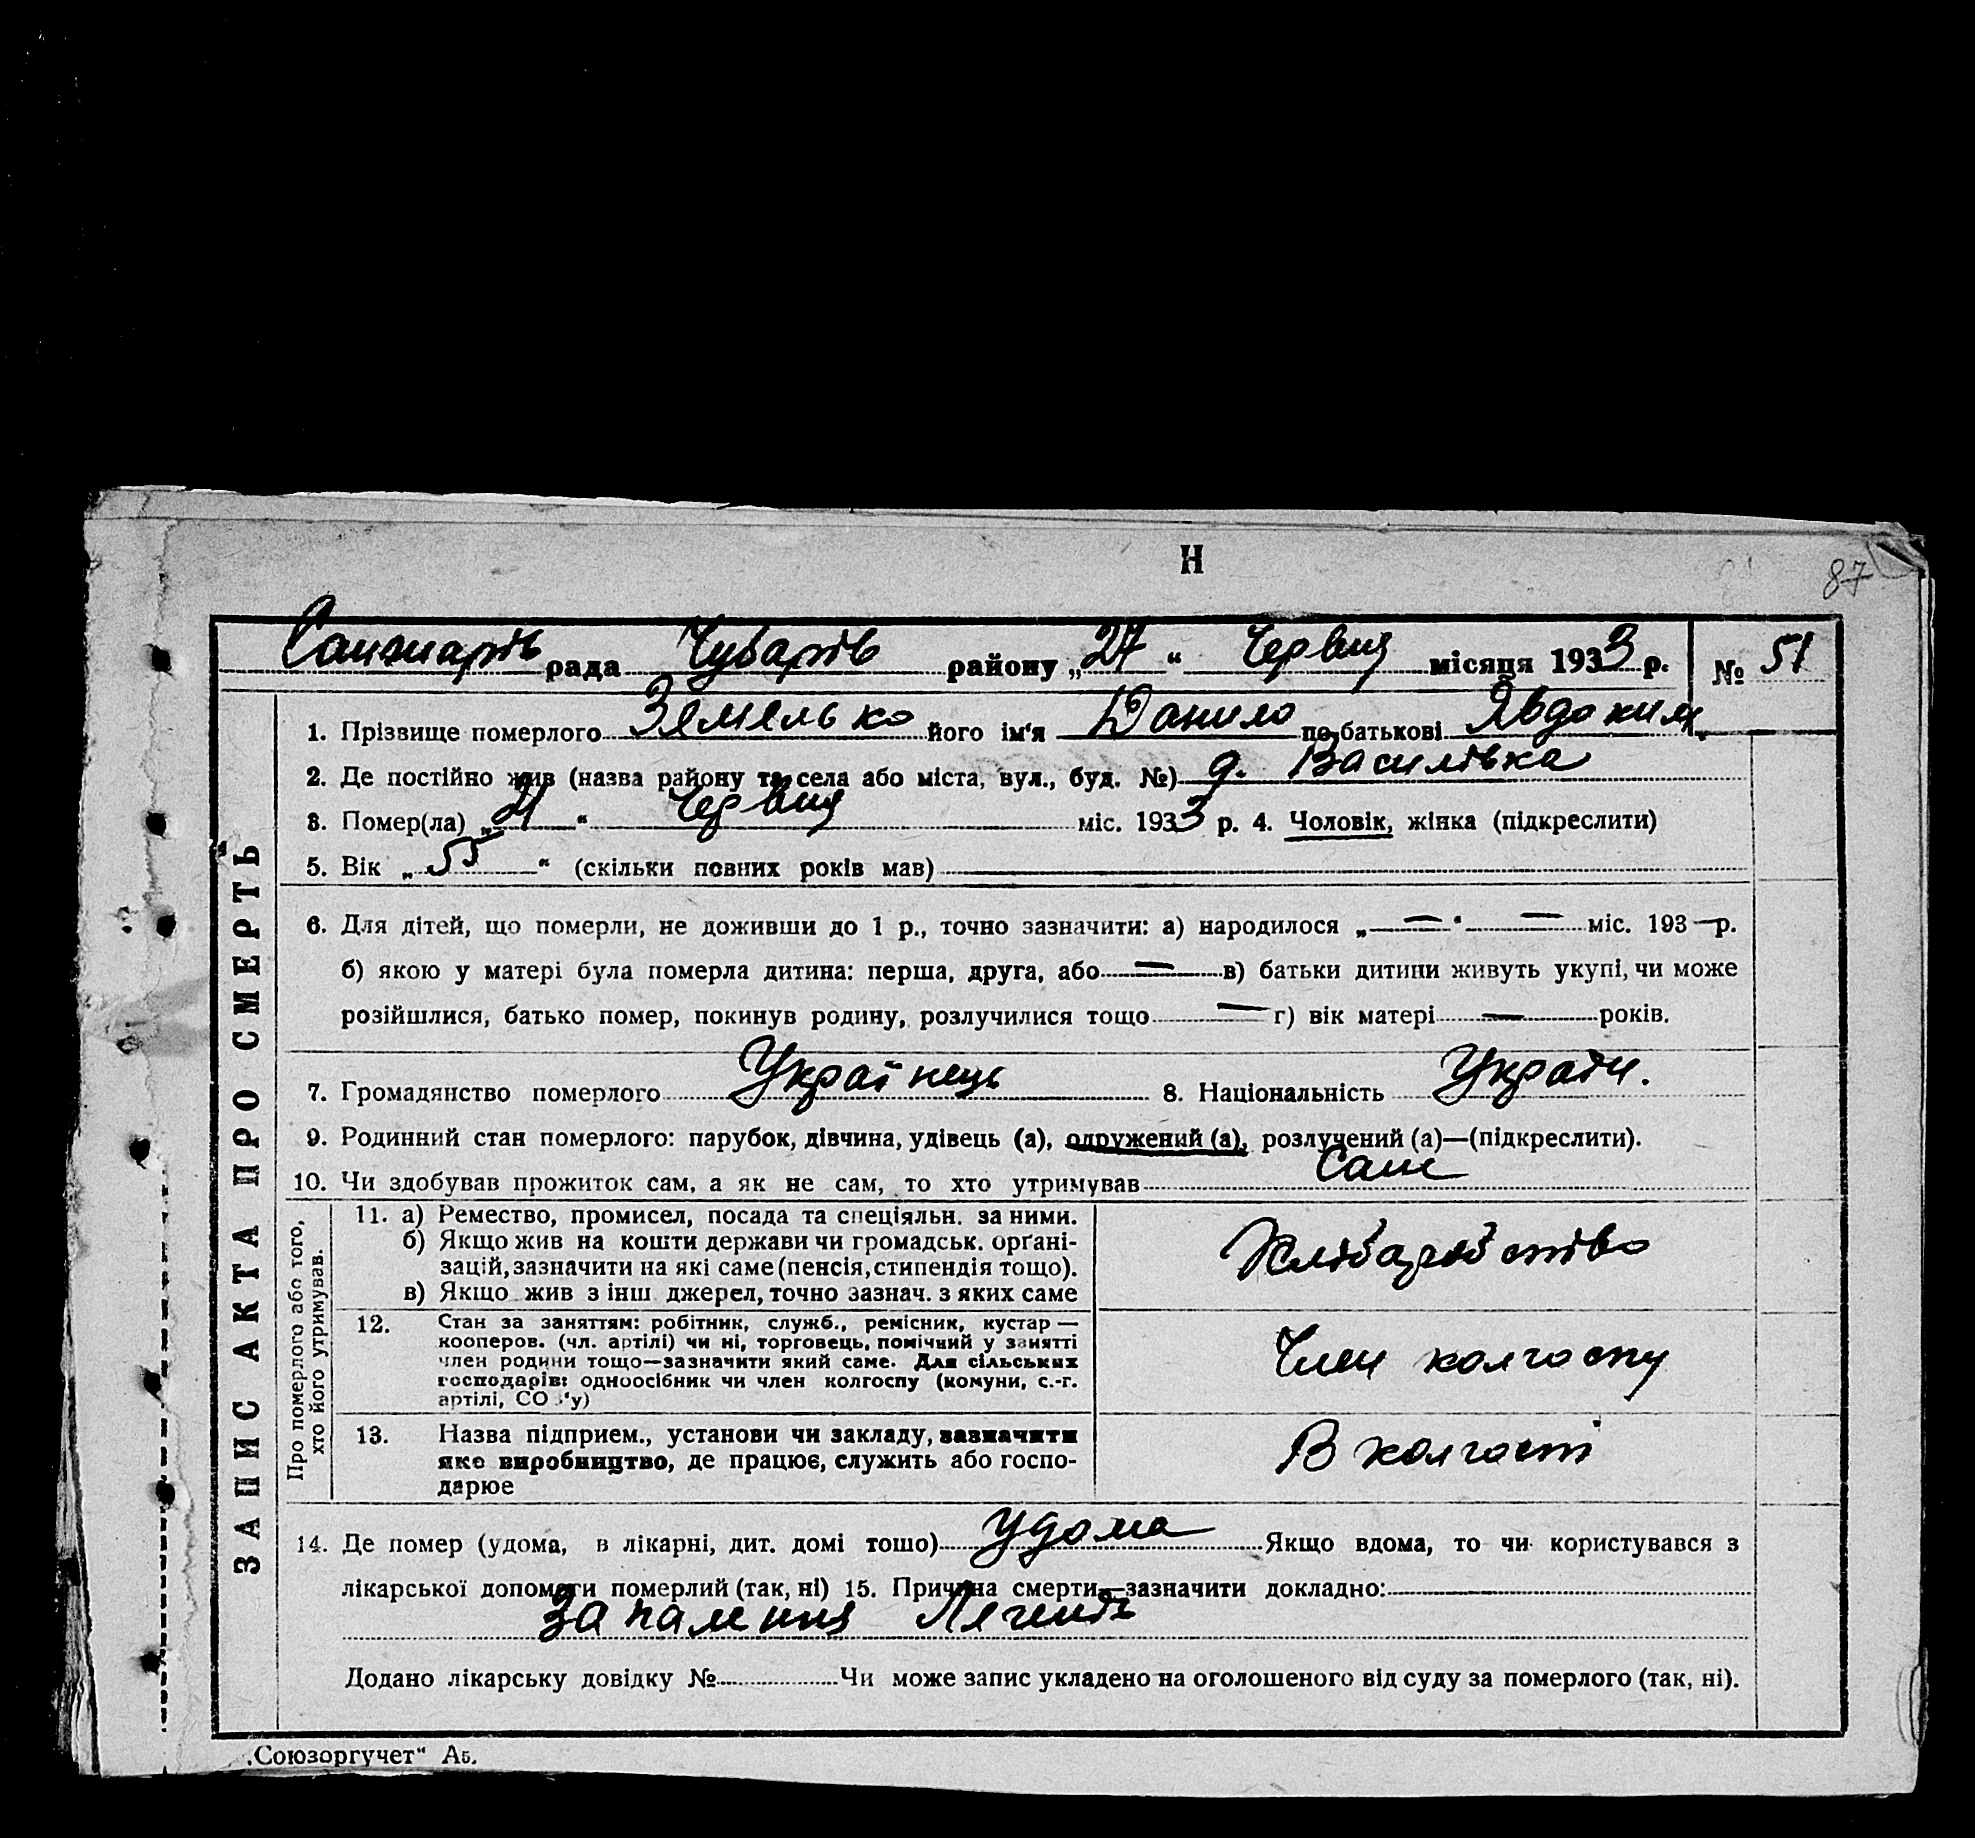 Н
87
Санжарів рада Чубарів району „27“ Червня місяця 1933 р. № 51
ЗАПИС АКТА ПРО СМЕРТЬ
1. Прізвище померлого Земелько його ім'я Данило по батькові Явдоким.
2. Де постійно жив (назва району та села або міста, вул., буд. №) д. Василівка
3. Помер(ла) „21“ Червня міс. 1933 р. 4. Чоловік, жінка (підкреслити)
5. Вік „55“ (скільки повних років мав)
6. Для дітей, що померли, не доживши до 1 р., точно зазначити: а) народилося „—“ — міс. 193— р.
б) якою у матері була померла дитина: перша, друга, або — в) батьки дитини живуть укупі, чи може
розійшлися, батько помер, покинув родину, розлучилися тощо — г) вік матері — років.
7. Громадянство померлого Українець 8. Національність
9. Родинний стан померлого: парубок, дівчина, удівець (а), одружений (а), розлучений (а)—(підкреслити).
10. Чи здобував прожиток сам, а як не сам, то хто утримував Сам
Про померлого або того,
хто його утримував.
11. а) Ремество, промисел, посада та спеціяльн. за ними.
б) Якщо жив на кошти держави чи громадськ. орґані-
зацій, зазначити на які саме (пенсія, стипендія тощо).
в) Якщо жив з інш. джерел, точно зазнач. з яких саме
Хліборобство
12. Стан за заняттям: робітник, служб., ремісник, кустар —
кооперов. (чл. артілі) чи ні, торговець, помічний у занятті
член родини тощо—зазначити який саме. Для сільських
господарів: одноосібник чи член колгоспу (комуни, с.-г.
артілі, СО 'у)
Член колгоспу
13. Назва підприєм., установи чи закладу, зазначити
яке виробництво, де працює, служить або госпо-
дарює
В колгоспі
14. Де помер (удома, в лікарні, дит. домі тошо) Удома Якщо вдома, то чи користувався з
лікарської допомоги померлий (так, ні) 15. Причина смерти—зазначити докладно:
Запалення Легенів
Додано лікарську довідку № Чи може запис укладено на оголошеного від суду за померлого (так, ні).
„Союзоргучет“ Аб.